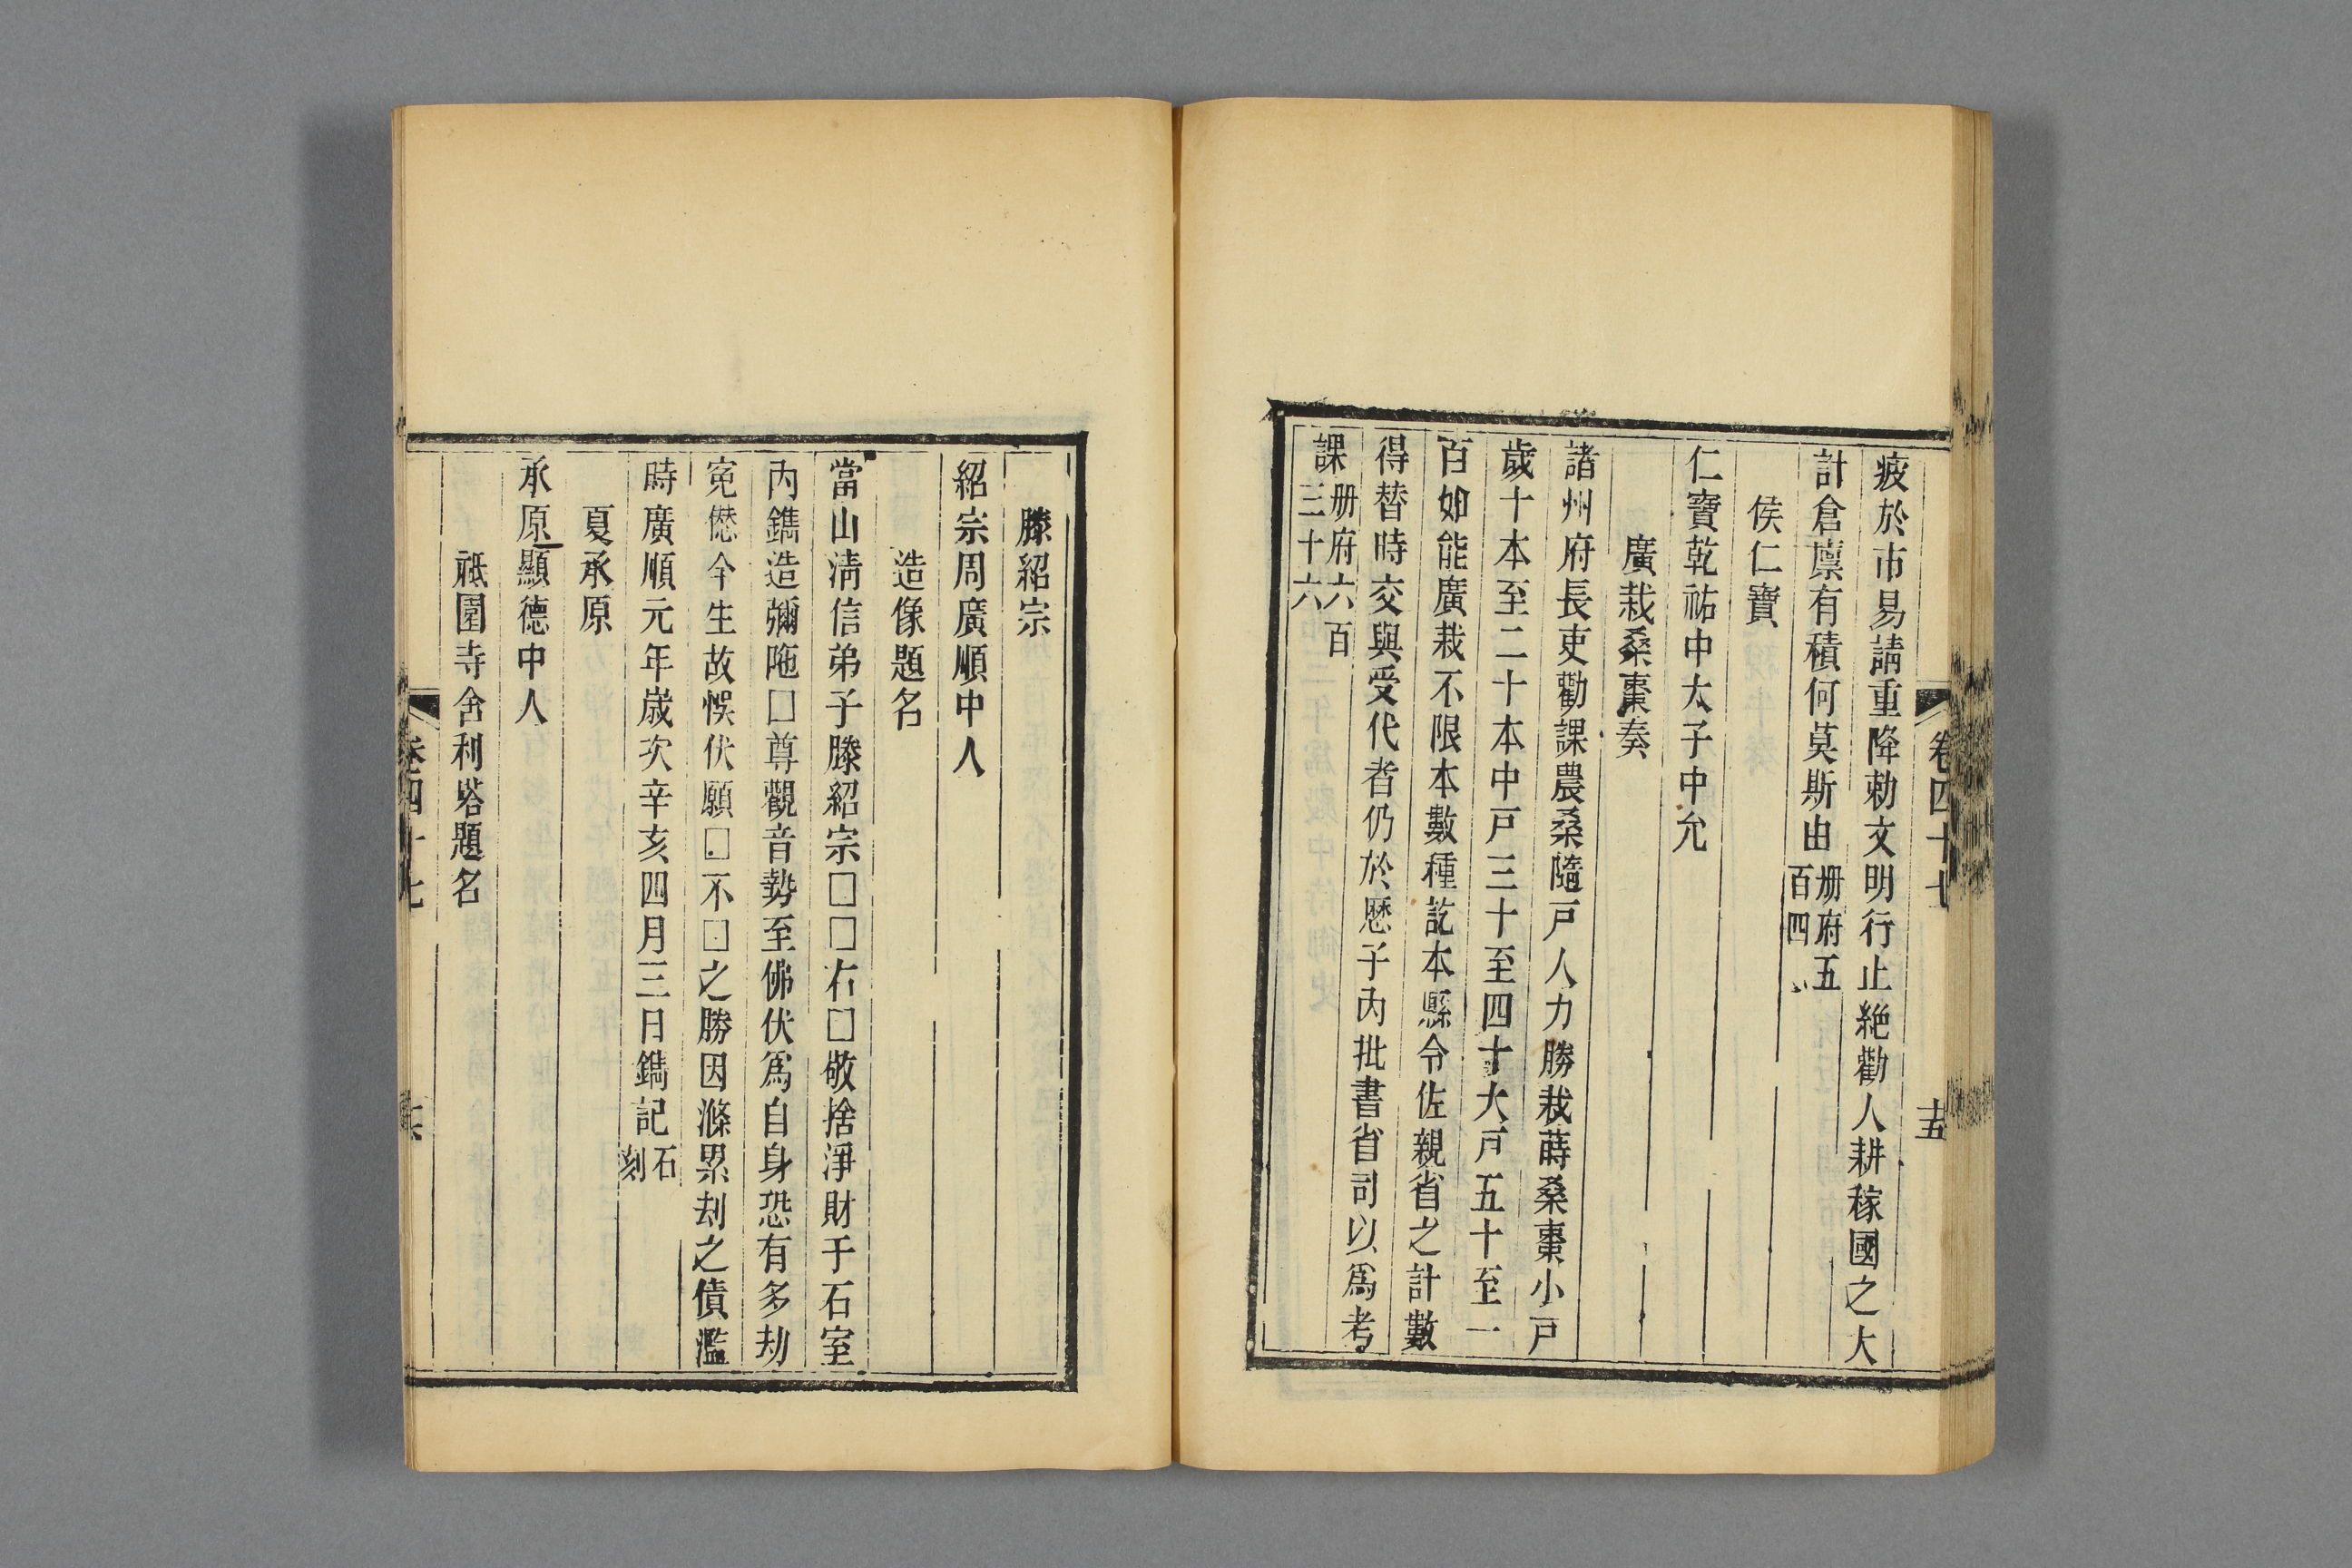 疲於市易請重降勅文明行止絶勸人耕稼國之大
計倉廪有積何莫斯由册府五百四
侯仁寶
仁寶乾祐中太子中允
廣栽桑棗奏
諸州府長吏勸課農桑隨戸人力勝栽蒔桑棗小戸
歲十本至二十本中戸三十至四十大戸五十至一
百如能廣栽不限本數種訖本縣令佐親省之計數
得替時交與受代者仍於歷子內批書省司以爲考
課册府六百三十六
卷四十七
十五
滕紹宗
紹宗周廣順中人
造像題名
當山淸信弟子滕紹宗□□右□敬捨淨財于石室
內鐫造彌陁□尊觀音勢至佛伏爲自身恐有多劫
寃僽今生故悞伏願□不□之勝因滌累刦之債濫
時廣順元年歲次辛亥四月三日鐫記石刻
夏承原
承原顯德中人
祇園寺舍利塔題名
卷四十七